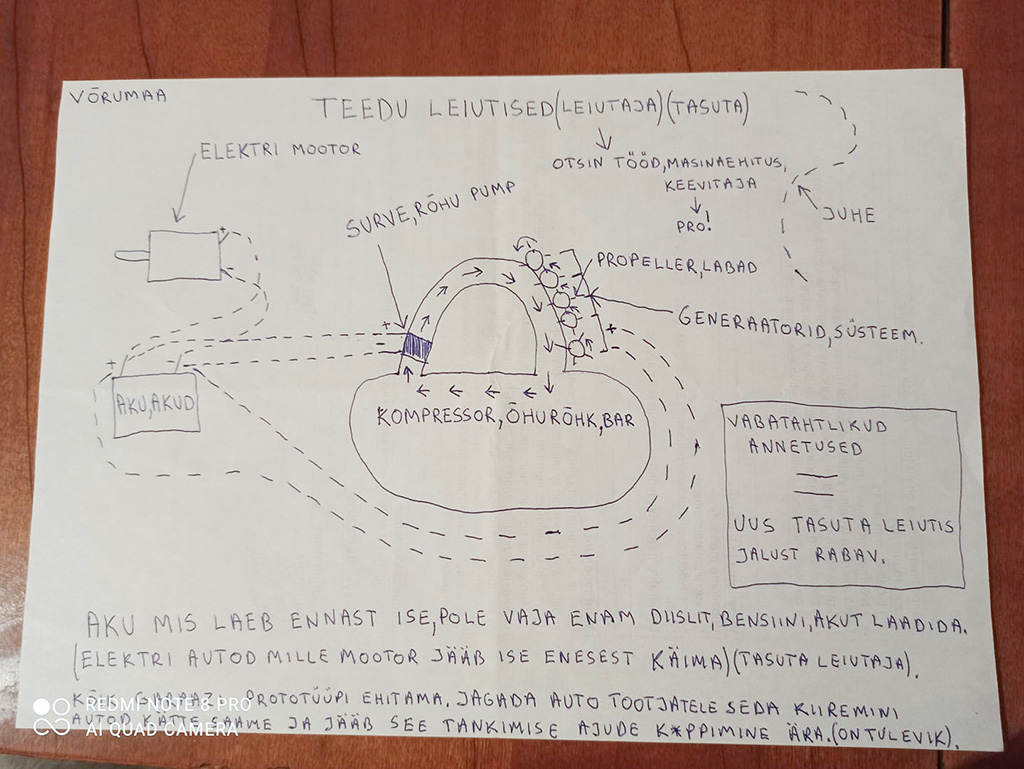 VÕRUMAA
TEEDU LEIUTISED(LEIUTAJA)(TASUTA)
OTSIN TÖÖD, MASINAEHITUS,
KEEVITAJA
PRO!
JUHE
ELEKTRI MOOTOR
SURVE, RÕHU PUMP
PROPELLER, LABAD
GENERAATORID, SÜSTEEM.
+
-
+
-
+
-
+
-
AKU, AKUD
KOMPRESSOR, ÕHURÕHK, BAR
VABATAHTLIKUD
ANNETUSED
=
UUS TASUTA LEIUTIS
JALUST RABAV.
AKU MIS LAEB ENNAST ISE, POLE VAJA ENAM DIISLIT, BENSIINI, AKUT LAADIDA.
(ELEKTRI AUTOD MILLE MOOTOR JÄÄB ISE ENESEST KÄIMA)(TASUTA LEIUTAJA).
KÕIK GARAAZI PROTOTÜÜPI EHITAMA. JAGADA AUTO TOOTJATELE SEDA KIIREMINI
AUTOD KÄTTE SAAME JA JÄÄB SEE TANKIMISE AJUDE K*PPIMINE ÄRA.(ON TULEVIK).
REDMI NOTE 8 PRO
AI QUAD CAMERA